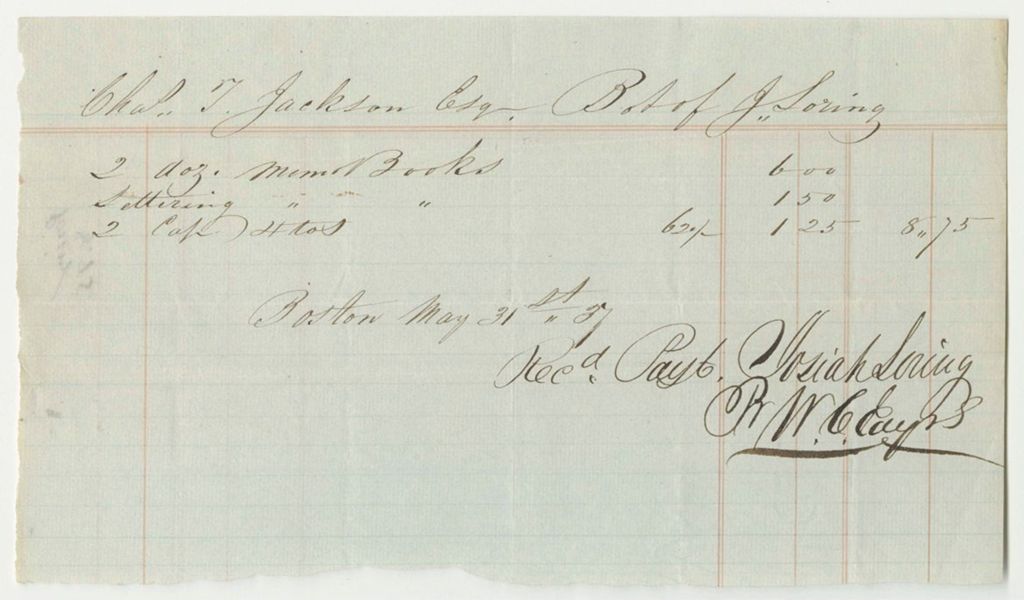 Chas. T. Jackson Esq. Bot of J. Loring
2 doz. Memo Books 6 00
Lettering " " 1 50
2 Cap 4tos 62½ 1 25 8,,75
Boston May 31st " 37
Rec'd. Payt. Josiah Loring
Pr W. C.